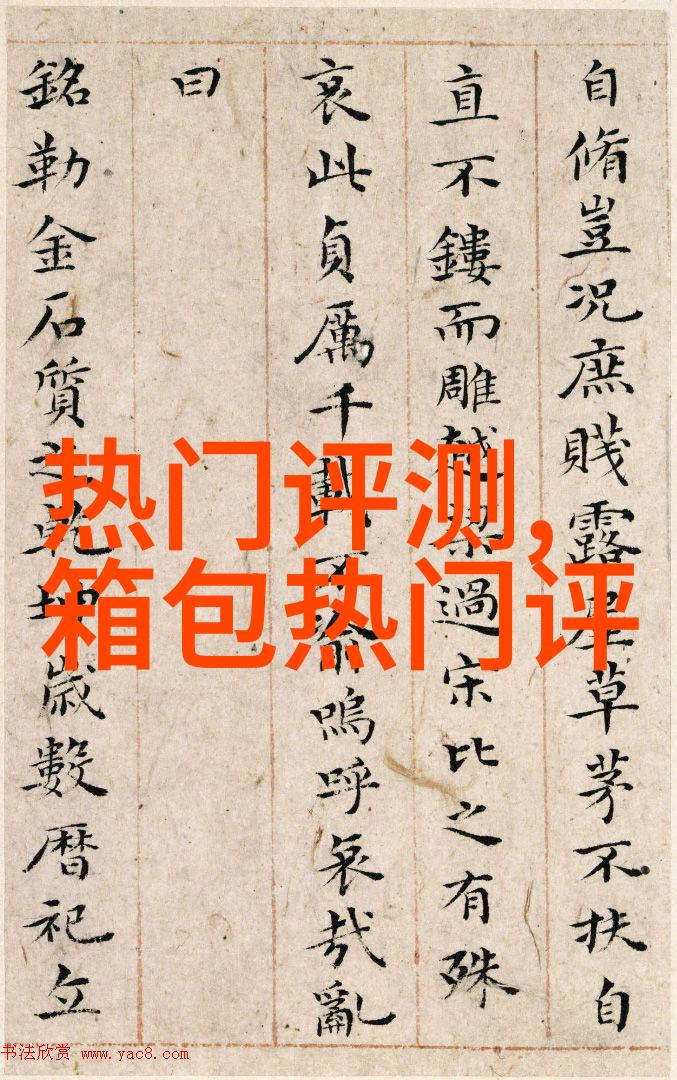 自脩豈況庶賤露屋草茅不扶自
直不鏤而雕越梁過宋比之有殊
哀此貞厲千載不渝嗚呼哀哉亂
曰
銘勒金石質之乾坤歲數曆祀立
热门评测,
箱包热门评
书法欣赏 www.yac8.com